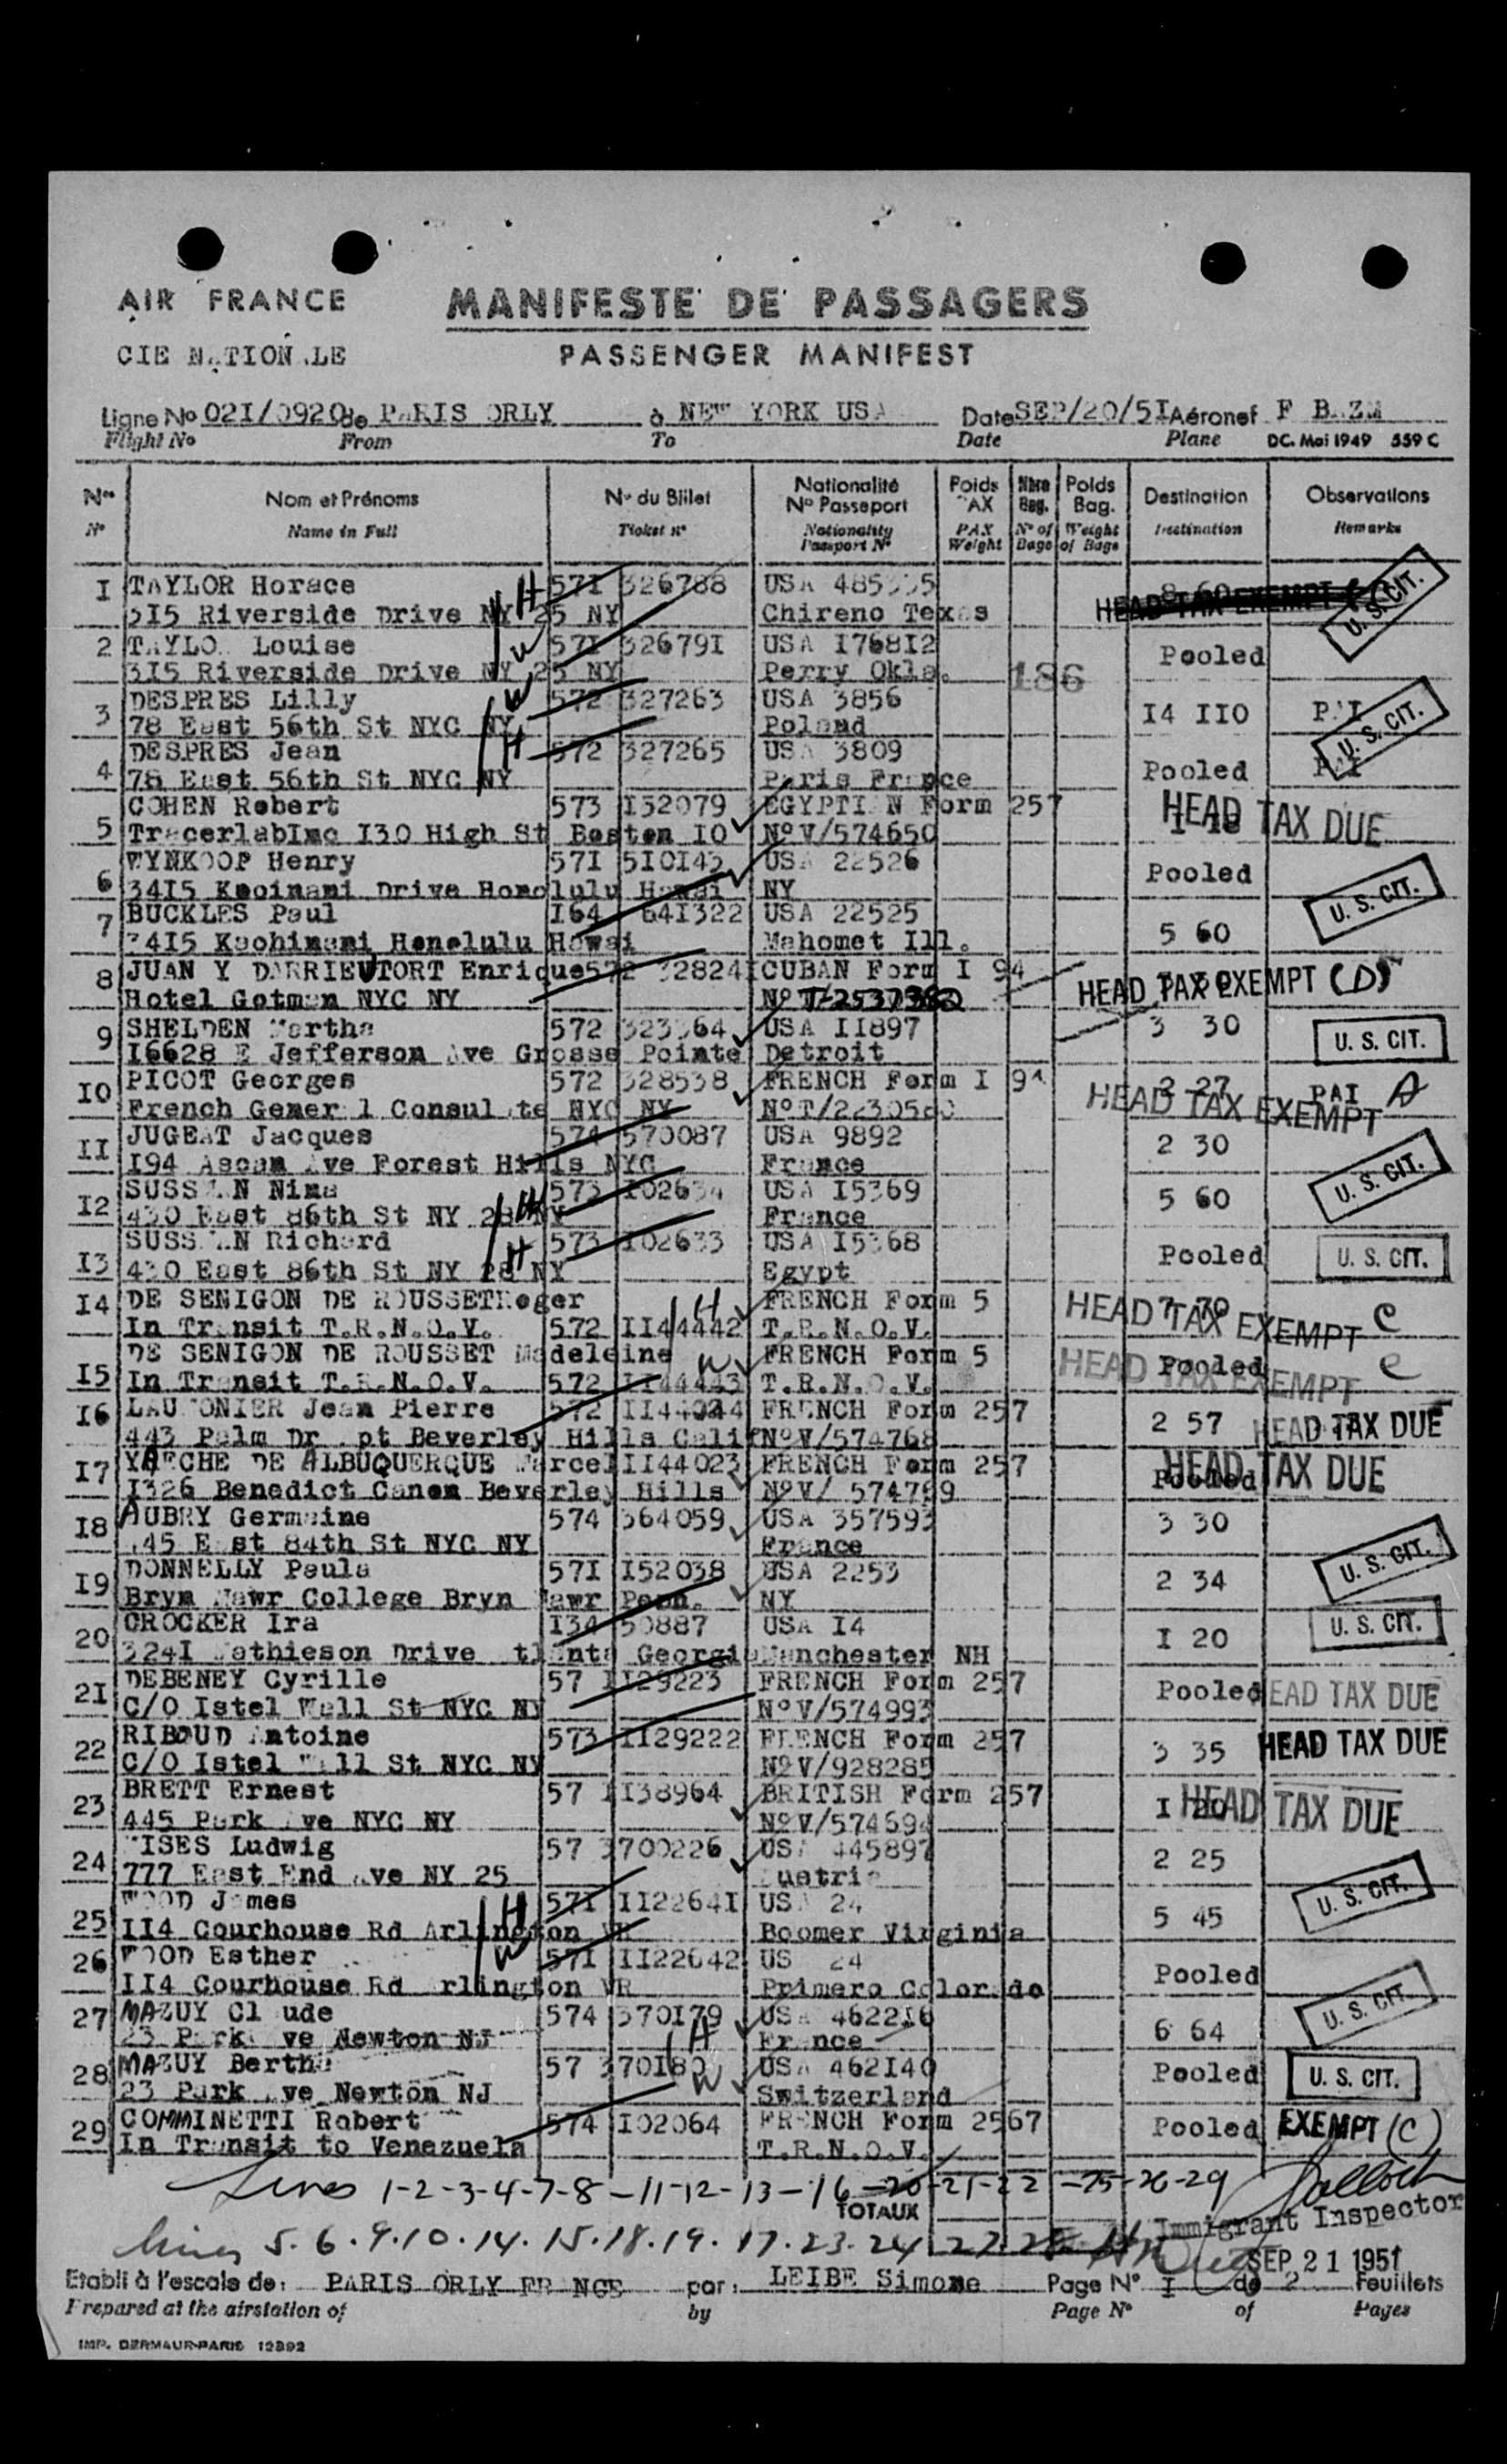 AIR FRANCE
MANIFESTE DE PASSAGERS
CIE NATIONALE
PASSENGER MANIFEST
Ligne No 02I/0920 de PARIS ORLY à NEW YORK USA Date SEP/20/5I Aéronef F BAZM
Flight No From To Date Plane DC. Mai 1949 559 C
Nos Nom et Prénoms No du Billet Nationalité No Passeport Poids PAX Nbre Bag. Poids Bag. Destination Observations
No Name in Full Ticket no Nationality Passport No PAX Weight No of Bags Weight of Bags Destination Remarks
I TAYLOR Horace H 57I 326788 USA 8 60 HEAD TAX EXEMPT U.S. CIT.
Riverside Drive NY 25 NY Chireno Texas
2 TAYLOR Louise W 57I 32679I USA I768I2 Pooled
3I5 Riverside Drive NY 25 NY Perry Okla. 186
3 DESPRES Lilly W 572 327263 USA 3856 I4 IIO PAI U.S. CIT.
78 East 56th St NYC NY Poland
4 DESPRES Jean H 572 327265 USA 3809 Pooled PAI
78 East 56th St NYC NY Paris France
5 COHEN Robert 573 I32079 EGYPTIAN Form 257 I 18 HEAD TAX DUE
TracerlabInc I30 High St Boston IO NoV/574650
6 WYNKOOP Henry 57I 5I0I43 USA 22526 Pooled
34I5 Drive Honolulu Hawai NY U.S. CIT.
7 BUCKLES Paul I64 64I322 USA 22525 5 60
34I5 Honolulu Hawai Mahomet Ill.
8 JUAN Y DARRIEUTORT Enrique 572 32824I CUBAN Form I 94 HEAD TAX EXEMPT (D)
Hotel Gotman NYC NY No
9 SHELDEN Martha 572 323364 USA II897 3 30 U.S. CIT.
I6628 E Jefferson Ave Grosse Pointe Detroit
IO PICOT Georges 572 328538 FRENCH Form I 94 2 27 PAI A HEAD TAX EXEMPT
French General Consulate NYC NY NoT/
II JUGEAT Jacques 574 570087 USA 9892 2 30
I94 Ascan Ave Forest Hills NYC France U.S. CIT.
I2 SUSSMAN Nina W 573 I02634 USA I5369 5 60
430 East 86th St NY 28 NY France
I3 SUSSMAN Richard H 573 I02633 USA I5368 Pooled U.S. CIT.
430 East 86th St NY 28 NY Egypt
I4 DE SENIGON DE ROUSSET Roger H FRENCH Form 5 7 70 HEAD TAX EXEMPT C
In Transit T.R.N.O.V. 572 II44442 T.R.N.O.V.
I5 DE SENIGON DE ROUSSET Madeleine W FRENCH Form 5 Pooled HEAD TAX EXEMPT C
In Transit T.R.N.O.V. 572 II44443 T.R.N.O.V.
I6 Jean Pierre 572 II44024 FRENCH Form 257 2 57 HEAD TAX DUE
443 Palm Dr Apt Beverley Hills Calif NoV/574768
I7 DE ALBUQUERQUE Marcel II44023 FRENCH Form 257 Pooled HEAD TAX DUE
I326 Benedict Canon Beverley Hills NoV/
I8 AUBRY Germaine 574 364059 USA 357593 3 30
East 84th St NYC NY France U.S. CIT.
I9 DONNELLY Paula 57I I52038 USA 2253 2 34
Bryn Mawr College Bryn Mawr Penn. NY
20 CROCKER Ira I34 50887 USA I4 I 20 U.S. CIT.
324I Mathieson Drive Atlanta Georgia Manchester NH
2I DEBENEY Cyrille 57 II29223 FRENCH Form 257 Pooled HEAD TAX DUE
C/O Istel Wall St NYC NY NoV/574993
22 RIBOUD Antoine 573 II29222 FRENCH Form 257 3 35 HEAD TAX DUE
C/O Istel Wall St NYC NY NoV/928285
23 BRETT Ernest 57 II38964 BRITISH Form 257 I 20 HEAD TAX DUE
445 Park Ave NYC NY NoV/574694
24 MISES Ludwig 57 3700226 USA 445897 2 25
777 East End Ave NY 25 Austria U.S. CIT.
25 WOOD James H 57I II2264I USA 24 5 45
II4 Courhouse Rd Arlington VR Boomer Virginia
26 WOOD Esther W 57I II22642 US 24 Pooled
II4 Courhouse Rd Arlington VR Primero Colorado
27 MAZUY Claude H 574 370I79 USA 4622I6 6 64 U.S. CIT.
23 Park Ave Newton NJ France
28 MAZUY Bertha W 57 370I80 USA 462I40 Pooled U.S. CIT.
23 Park Ave Newton NJ Switzerland
29 COMMINETTI Robert 574 I02064 FRENCH Form 2567 Pooled EXEMPT (C)
In Transit to Venezuela T.R.N.O.V.
Lines 1-2-3-4-7-8-11-12-13-16-20-21-22-25-26-29
TOTAUX
Immigrant Inspector
Lines 5.6.9.10.14.15.18.19.17.23.24 27.28
SEP 21 1951
Etabli à l'escale de: PARIS ORLY FRANCE par: LEIBE Simone Page No I de 2 Feuillets
Prepared at the airstation of by Page No of Pages
IMP. DERMAUR-PARIS 12392